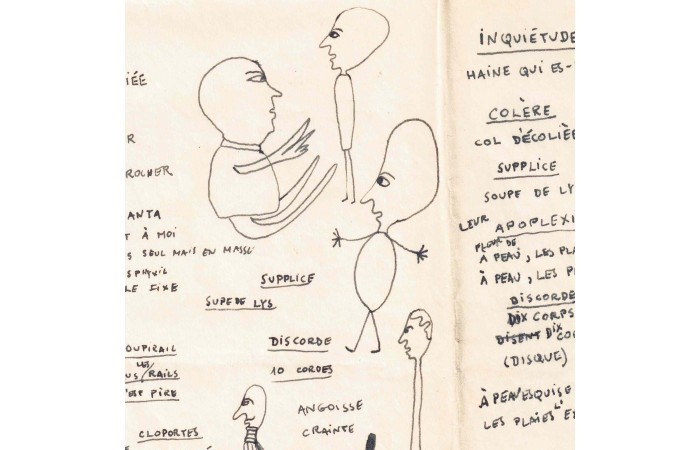 IÉE
R
ROCHER
ANTA
T À MOI
S SEUL MAIS EN MASSE
LE FIXE
SUPPLICE
SUPE DE LYS
DISCORDE
10 CORDES
OUPIRAIL
LES
US/RAILS
EST PIRE
CLOPORTES
ANGOISSE
CRAINTE
INQUIÉTUDE
HAINE QUI ES-
COLÈRE
COL D'ÉCOLIÈ
SUPPLICE
SOUPE DE LY
LEUR APOPLEXI
FLEUR DE
À PEAU, LES PLA
À PEAU, LES P
DISCORDE
DIX CORPS
DISENT DIX CO
(DISQUE)
À PEAV'ESQUISE
LES PLAIES